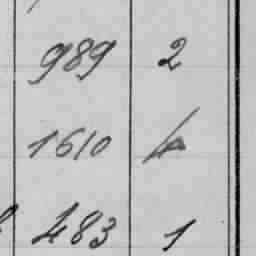 989 2
1610
483 1